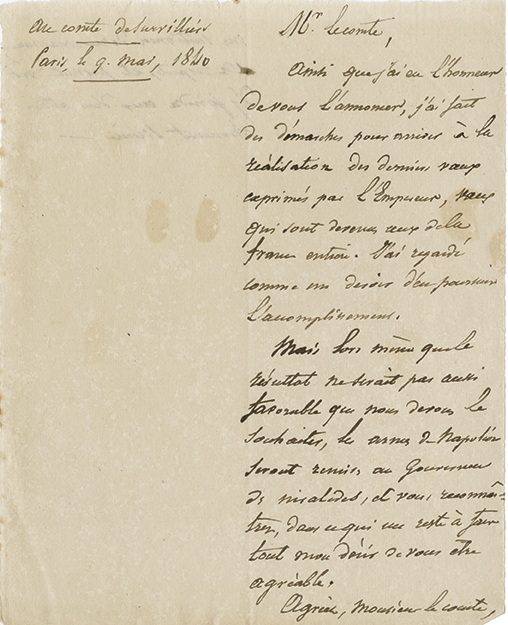 au comte de Survilliers
Paris, le 9. mai, 1840
Mr. le comte,
Ainsi que j'ai eu l'honneur
de vous l'annoncer, j'ai fait
des démarches pour arriver à la
réalisation des derniers vœux
exprimés par l'Empereur, vœux
qui sont devenus ceux de la
france entière. J'ai regardé
comme un devoir d'en poursuivre
l'accomplissement.
Mais lors même que le
résultat ne serait pas aussi
favorable que nous devons le
souhaiter, les armes de Napoléon
seront remises au Gouverneur
des invalides, et vous reconnaî-
trez, dans ce qui me reste à faire
tout mon désir de vous être
agréable.
Agréez, Monsieur le comte,